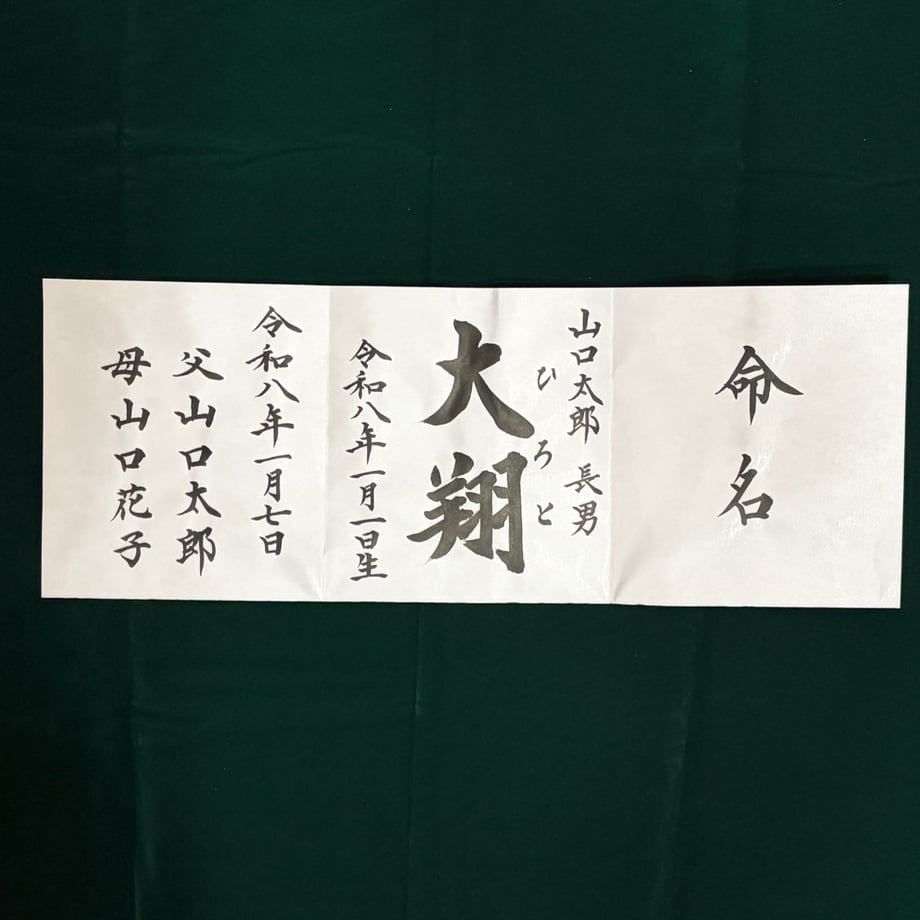 命名
山口太郎 長男
ひろと
大翔
令和八年一月一日生
令和八年一月七日
父山口太郎
母山口花子